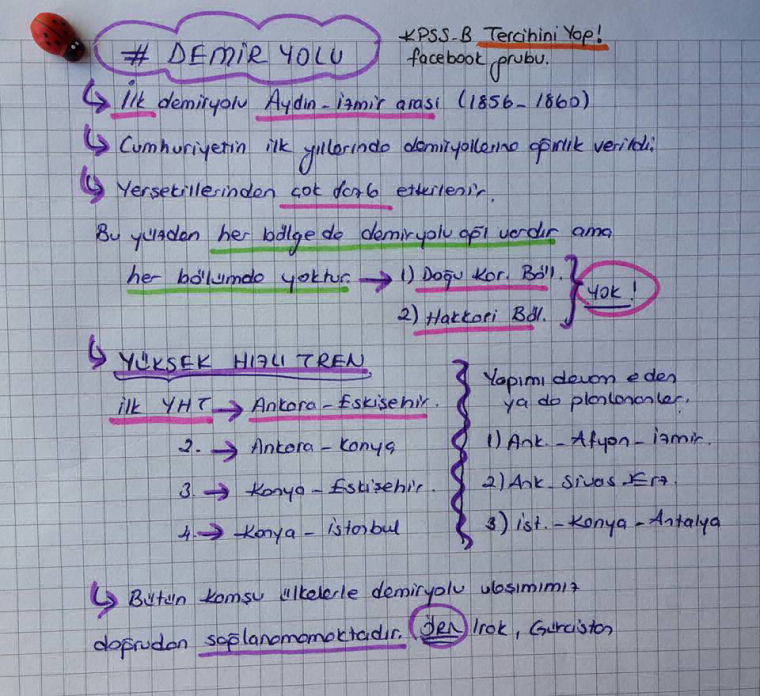 # DEMİR YOLU
KPSS-B Tercihini Yap!
facebook grubu.
İlk demiryolu Aydın-İzmir arası (1856-1860)
Cumhuriyetin ilk yıllarında demiryollarına ağırlık verildi.
Yerşekillerinden çok fazla etkilenir.
Bu yüzden her bölgede demiryolu ağı vardır ama
her bölümde yoktur → 1) Doğu Kar. Böl.
2) Hakkari Böl.
YOK!
YÜKSEK HIZLI TREN
ilk YHT → Ankara-Eskişehir.
2. → Ankara-Konya
3. → Konya-Eskişehir.
4. → Konya-İstanbul
Yapımı devam eden
ya da planlananlar.
1) Ank.-Afyon-İzmir.
2) Ank-Sivas-Erz.
3) İst.-Konya-Antalya
Bütün komşu ülkelerle demiryolu ulaşımımız
doğrudan sağlanamamaktadır. Irak, Gürcistan